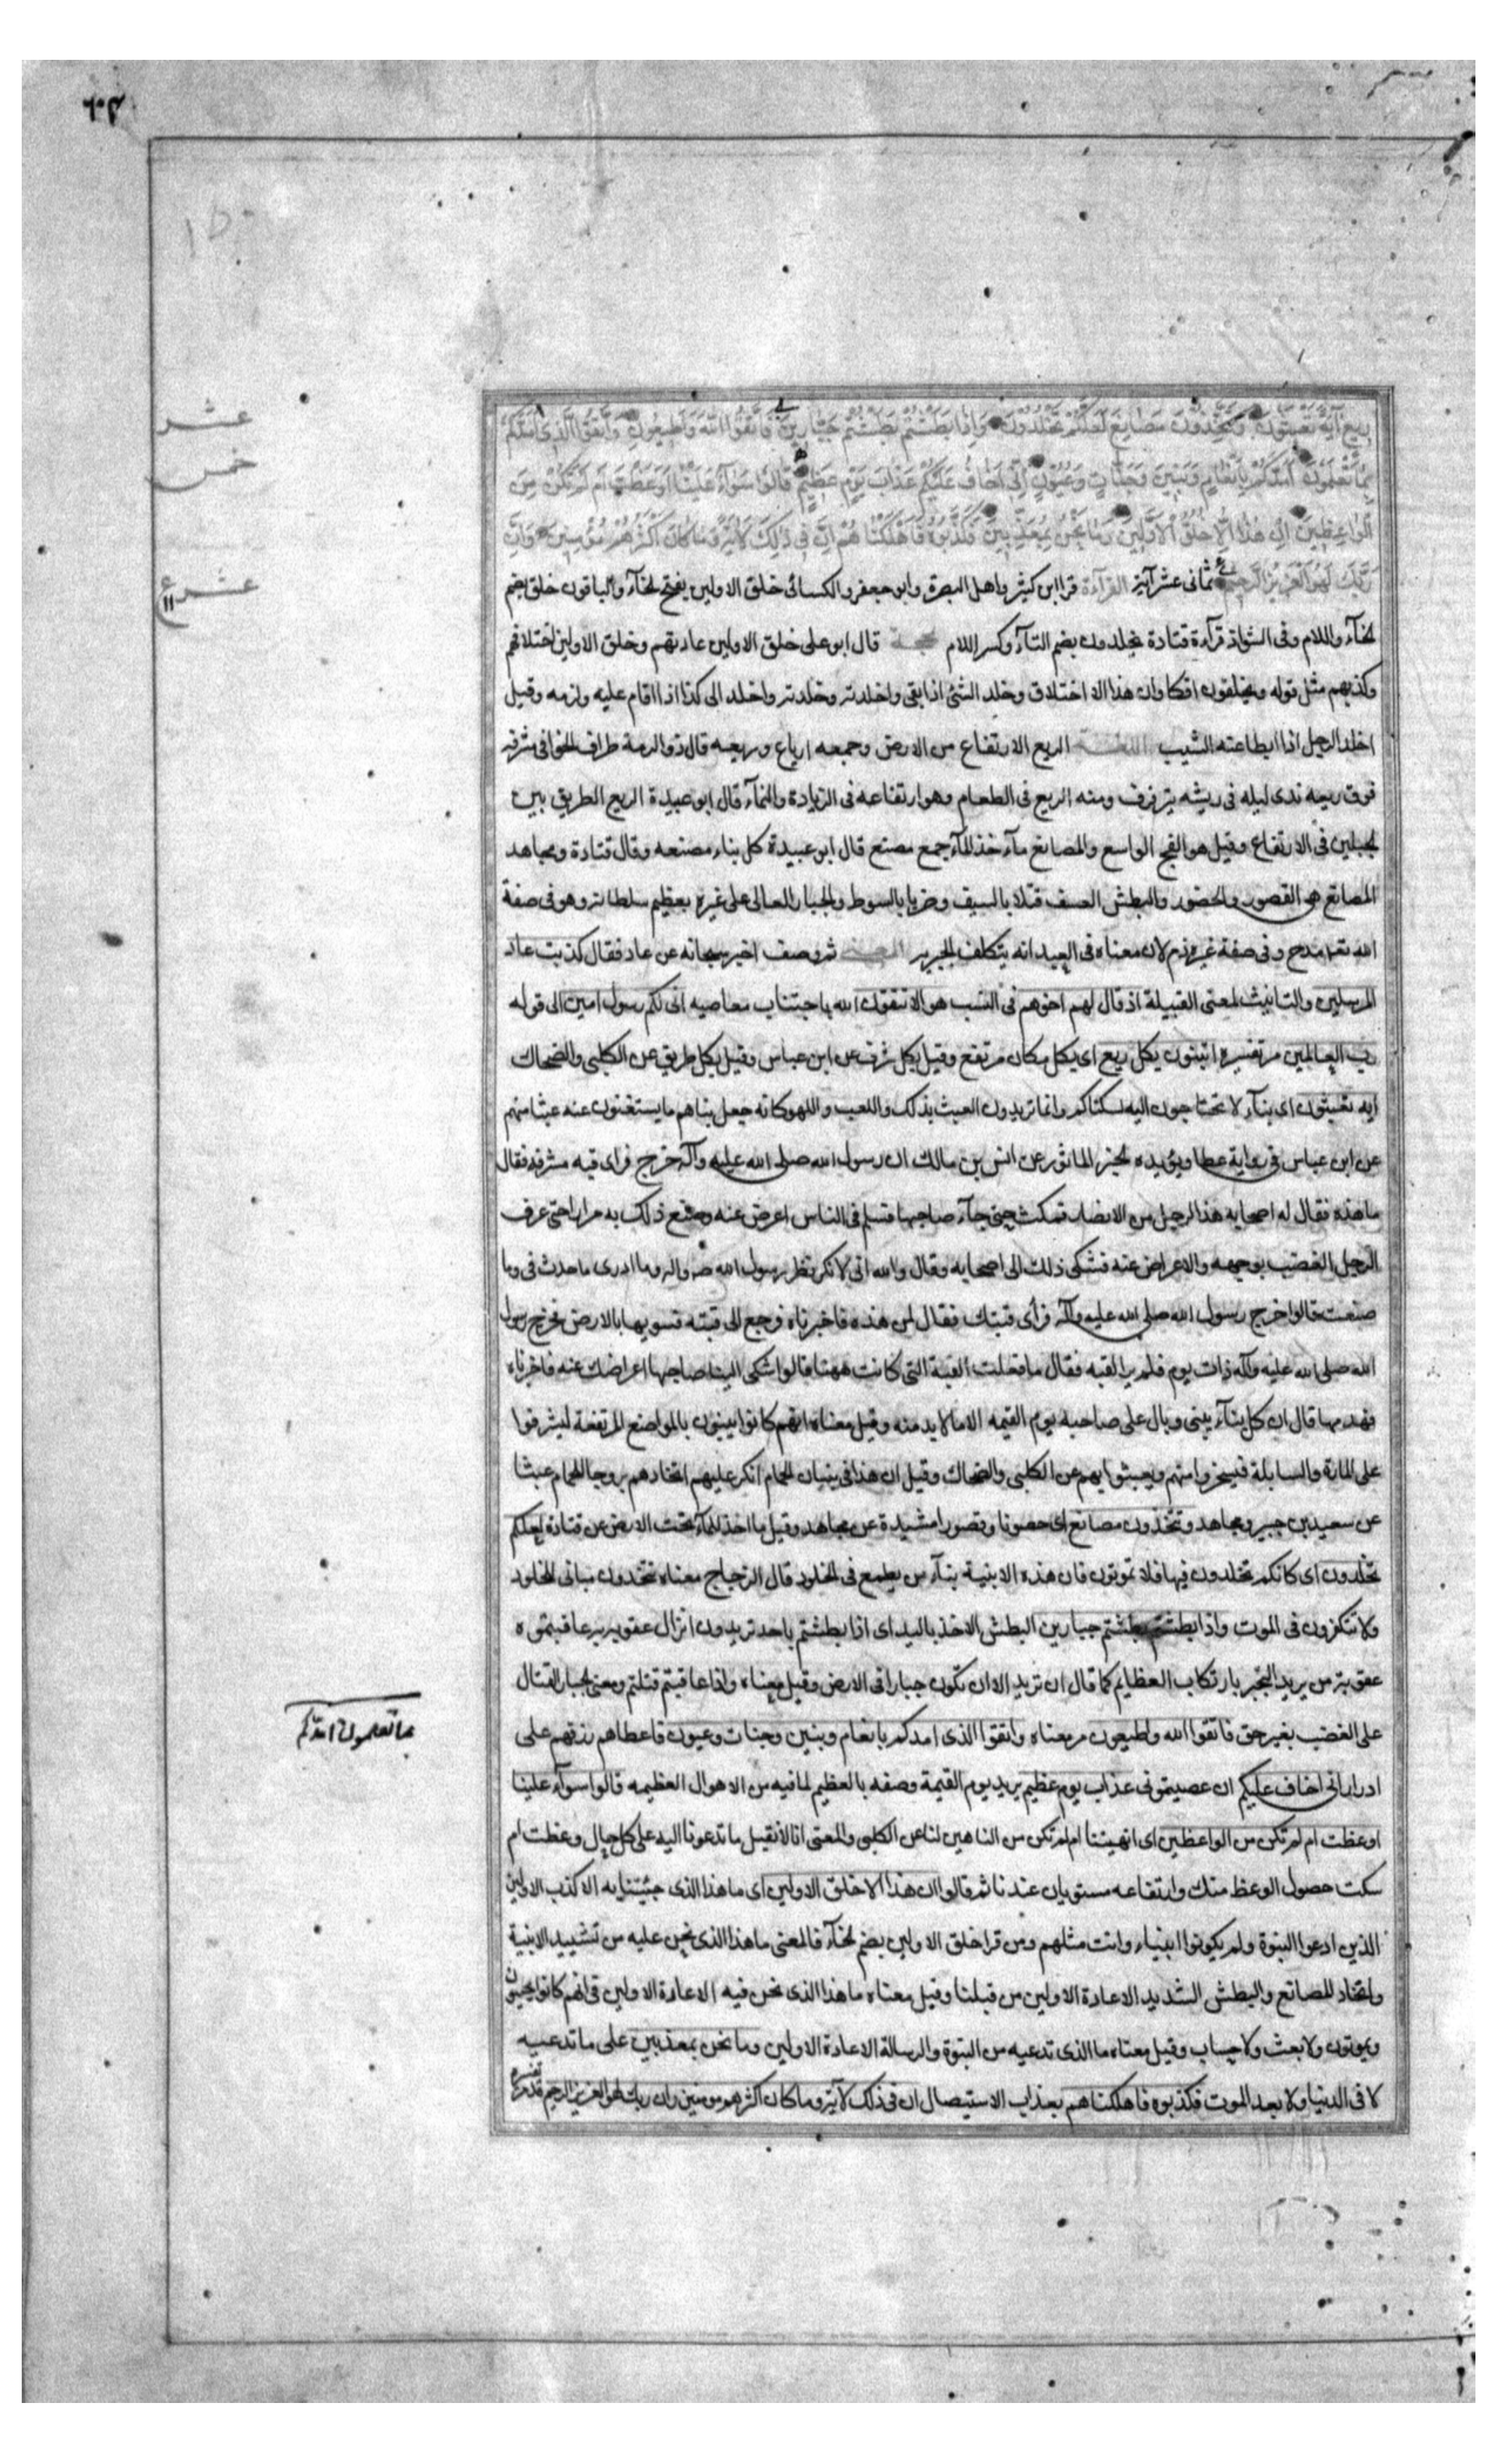 ريع آية تعبثون وتتخذون مصانع لعلكم تخلدون وإذا بطشتم بطشتم جبارين فاتقوا الله وأطيعون واتقوا الذي أمدكم
بما تعلمون أمدكم بأنعام وبنين وجنات وعيون إني أخاف عليكم عذاب يوم عظيم قالوا سواء علينا أوعظت أم لم تكن من
الواعظين إن هذا إلا خلق الأولين وما نحن بمعذبين فكذبوه فأهلكناهم إن في ذلك لآية وما كان أكثرهم مؤمنين وإن
ربك لهو العزيز الرحيم ثماني عشر آية القرآءة قرا ابن كثير واهل البصرة وابو جعفر والكسائى خلق الاولين بفتح الخآء والباقون خلق بضم
الخآء واللام وفى الشواذ قرآءة قتادة تخلدون بضم التآء وكسر اللام الحجة قال ابو على خلق الاولين عادتهم وخلق الاولين اختلاقهم
وكذبهم مثل قوله وتخلقون افكا وان هذا الا اختلاق وخلد الشئ اذا بقى واخلدته وخلدته واخلد الى كذا اذا اقام عليه ولزمه وقيل
اخلد الرجل اذا ابطا عنه الشيب اللغة الريع الارتفاع من الارض وجمعه ارياع وريعه قال ذو الرمة طراق الخوافى مشرف
فوق ريعه ندى ليله فى ريشه يترقرق ومنه الريع فى الطعام وهو ارتفاعه فى الزيادة والنمآء قال ابو عبيدة الريع الطريق بين
الجبلين فى الارتفاع وقيل هو الفج الواسع والمصانع مآخذ المآء جمع مصنع قال ابو عبيدة كل بناء مصنعه وقال قتادة ومجاهد
المصانع هى القصور والحصون والبطش العسف قتلا بالسيف وضربا بالسوط والجبار العالى على غيره بعظيم سلطانه وهو فى صفة
الله تعا مدح وفى صفة غيره ذم لان معناه فى العبد انه يتكلف الجبرية المعنى ثم وصف اخبر سبحانه عن عاد فقال كذبت عاد
المرسلين والتانيث لمعنى القبيلة اذ قال لهم اخوهم فى النسب هو الا تتقون الله باجتناب معاصيه انى لكم رسول امين الى قوله
رب العالمين مر تفسيره اتبنون بكل ريع اى بكل مكان مرتفع وقيل بكل شرف عن ابن عباس وقيل بكل طريق عن الكلبى والضحاك
ايه تعبثون اى بنآء لا تحتاجون اليه لسكناكم وانما تريدون العبث بذلك واللعب واللهو كانه جعل بناهم ما يستغنون عنه عبثا منهم
عن ابن عباس فى رواية عطا ويؤيده الخبر الماثور عن انس بن مالك ان رسول الله صلى الله عليه وآله خرج فراى قبه مشرفه فقال
ما هذه فقال له اصحابه هذا لرجل من الانصار فمكث حتى جآء صاحبها فسلم فى الناس اعرض عنه وصنع ذلك به مرارا حتى عرف
الرجل الغضب بوجهه والاعراض عنه فشكى ذلك الى اصحابه وقال والله انى لانكر نظر رسول الله صه واله وما ادرى ما حدث فى وما
صنعت قالوا خرج رسول الله صلى الله عليه وآله فرأى قبتك فقال لمن هذه فاخبرناه فرجع الى قبته فسويها بالارض فخرج رسول
الله صلى الله عليه وآله ذات يوم فلم ير القبه فقال ما فعلت القبة التى كانت ههنا قالوا شكى الينا صاحبها اعراضك عنه فاخبرناه
فهدمها قال ان كل بنآء يبنى وبال على صاحبه يوم القيمه الا ما لا بد منه وقيل معناه انهم كانوا يبنون بالمواضع المرتفعة ليشرفوا
على المارة والسابلة فيسخروا منهم ويعبثوا بهم عن الكلبى والضحاك وقيل ان هذا فى بنيان الحمام انكر عليهم اتخاذهم بروجا للحمام عبثا
عن سعيد بن جبير ومجاهد وتتخذون مصانع اى حصونا وقصورا مشيدة عن مجاهد وقيل ما اخذ للمآء تحت الارض عن قتادة لعلكم
تخلدون اى كانكم تخلدون فيها فلا تموتون فان هذه الابنية بنآء من يطمع فى الخلود قال الزجاج معناه تتخذون مبانى للخلود
ولا تتفكرون فى الموت واذا بطشتم بطشتم جبارين البطش الاخذ باليد اى اذا بطشتم باحد تريدون انزال عقوبه به عاقبتموه
عقوبة من يريد التجبر بارتكاب العظايم كما قال ان تريد الا ان تكون جبارا فى الارض وقيل معناه واذا عاقبتم قتلتم ومعنى الجبار القتال
على الغضب بغير حق فاتقوا الله واطيعون مر معناه واتقوا الذى امدكم بانعام وبنين وجنات وعيون فاعطاهم رزقهم على
ادرار انى اخاف عليكم ان عصيتمونى عذاب يوم عظيم يريد يوم القيمة وصفه بالعظيم لما فيه من الاهوال العظيمه قالوا سوآء علينا
اوعظت ام لم تكن من الواعظين اى انهيتنا ام لم تكن من الناهين لنا عن الكلبى والمعنى انا لا نقبل ما تدعونا اليه على كل حال وعظت ام
سكت حصول الوعظ منك وارتفاعه مستويان عندنا ثم قالوا ان هذا الا خلق الاولين اى ما هذا الذى جئتنا به الا كذب الاولين
الذين ادعوا النبوة ولم يكونوا انبياء وانت مثلهم ومن قرا خلق الاولين بضم الخآء فالمعنى ما هذا الذى نحن عليه من تشييد الابنية
واتخاذ المصانع والبطش الشديد الا عادة الاولين من قبلنا وقيل معناه ما هذا الذى نحن فيه الا عادة الاولين فى انهم كانوا يحيون
ويموتون ولا بعث ولا حساب وقيل معناه ما الذى تدعيه من النبوة والرسالة الا عادة الاولين وما نحن بمعذبين على ما تدعيه
لا فى الدنيا ولا بعد الموت فكذبوه فاهلكناهم بعذاب الاستيصال ان فى ذلك لآية وما كان اكثرهم مومنين وان ربك لهو العزيز الرحيم قد مر تفسيره
عشر
خمس
عشر ع
١١
بما تعلمون امدكم